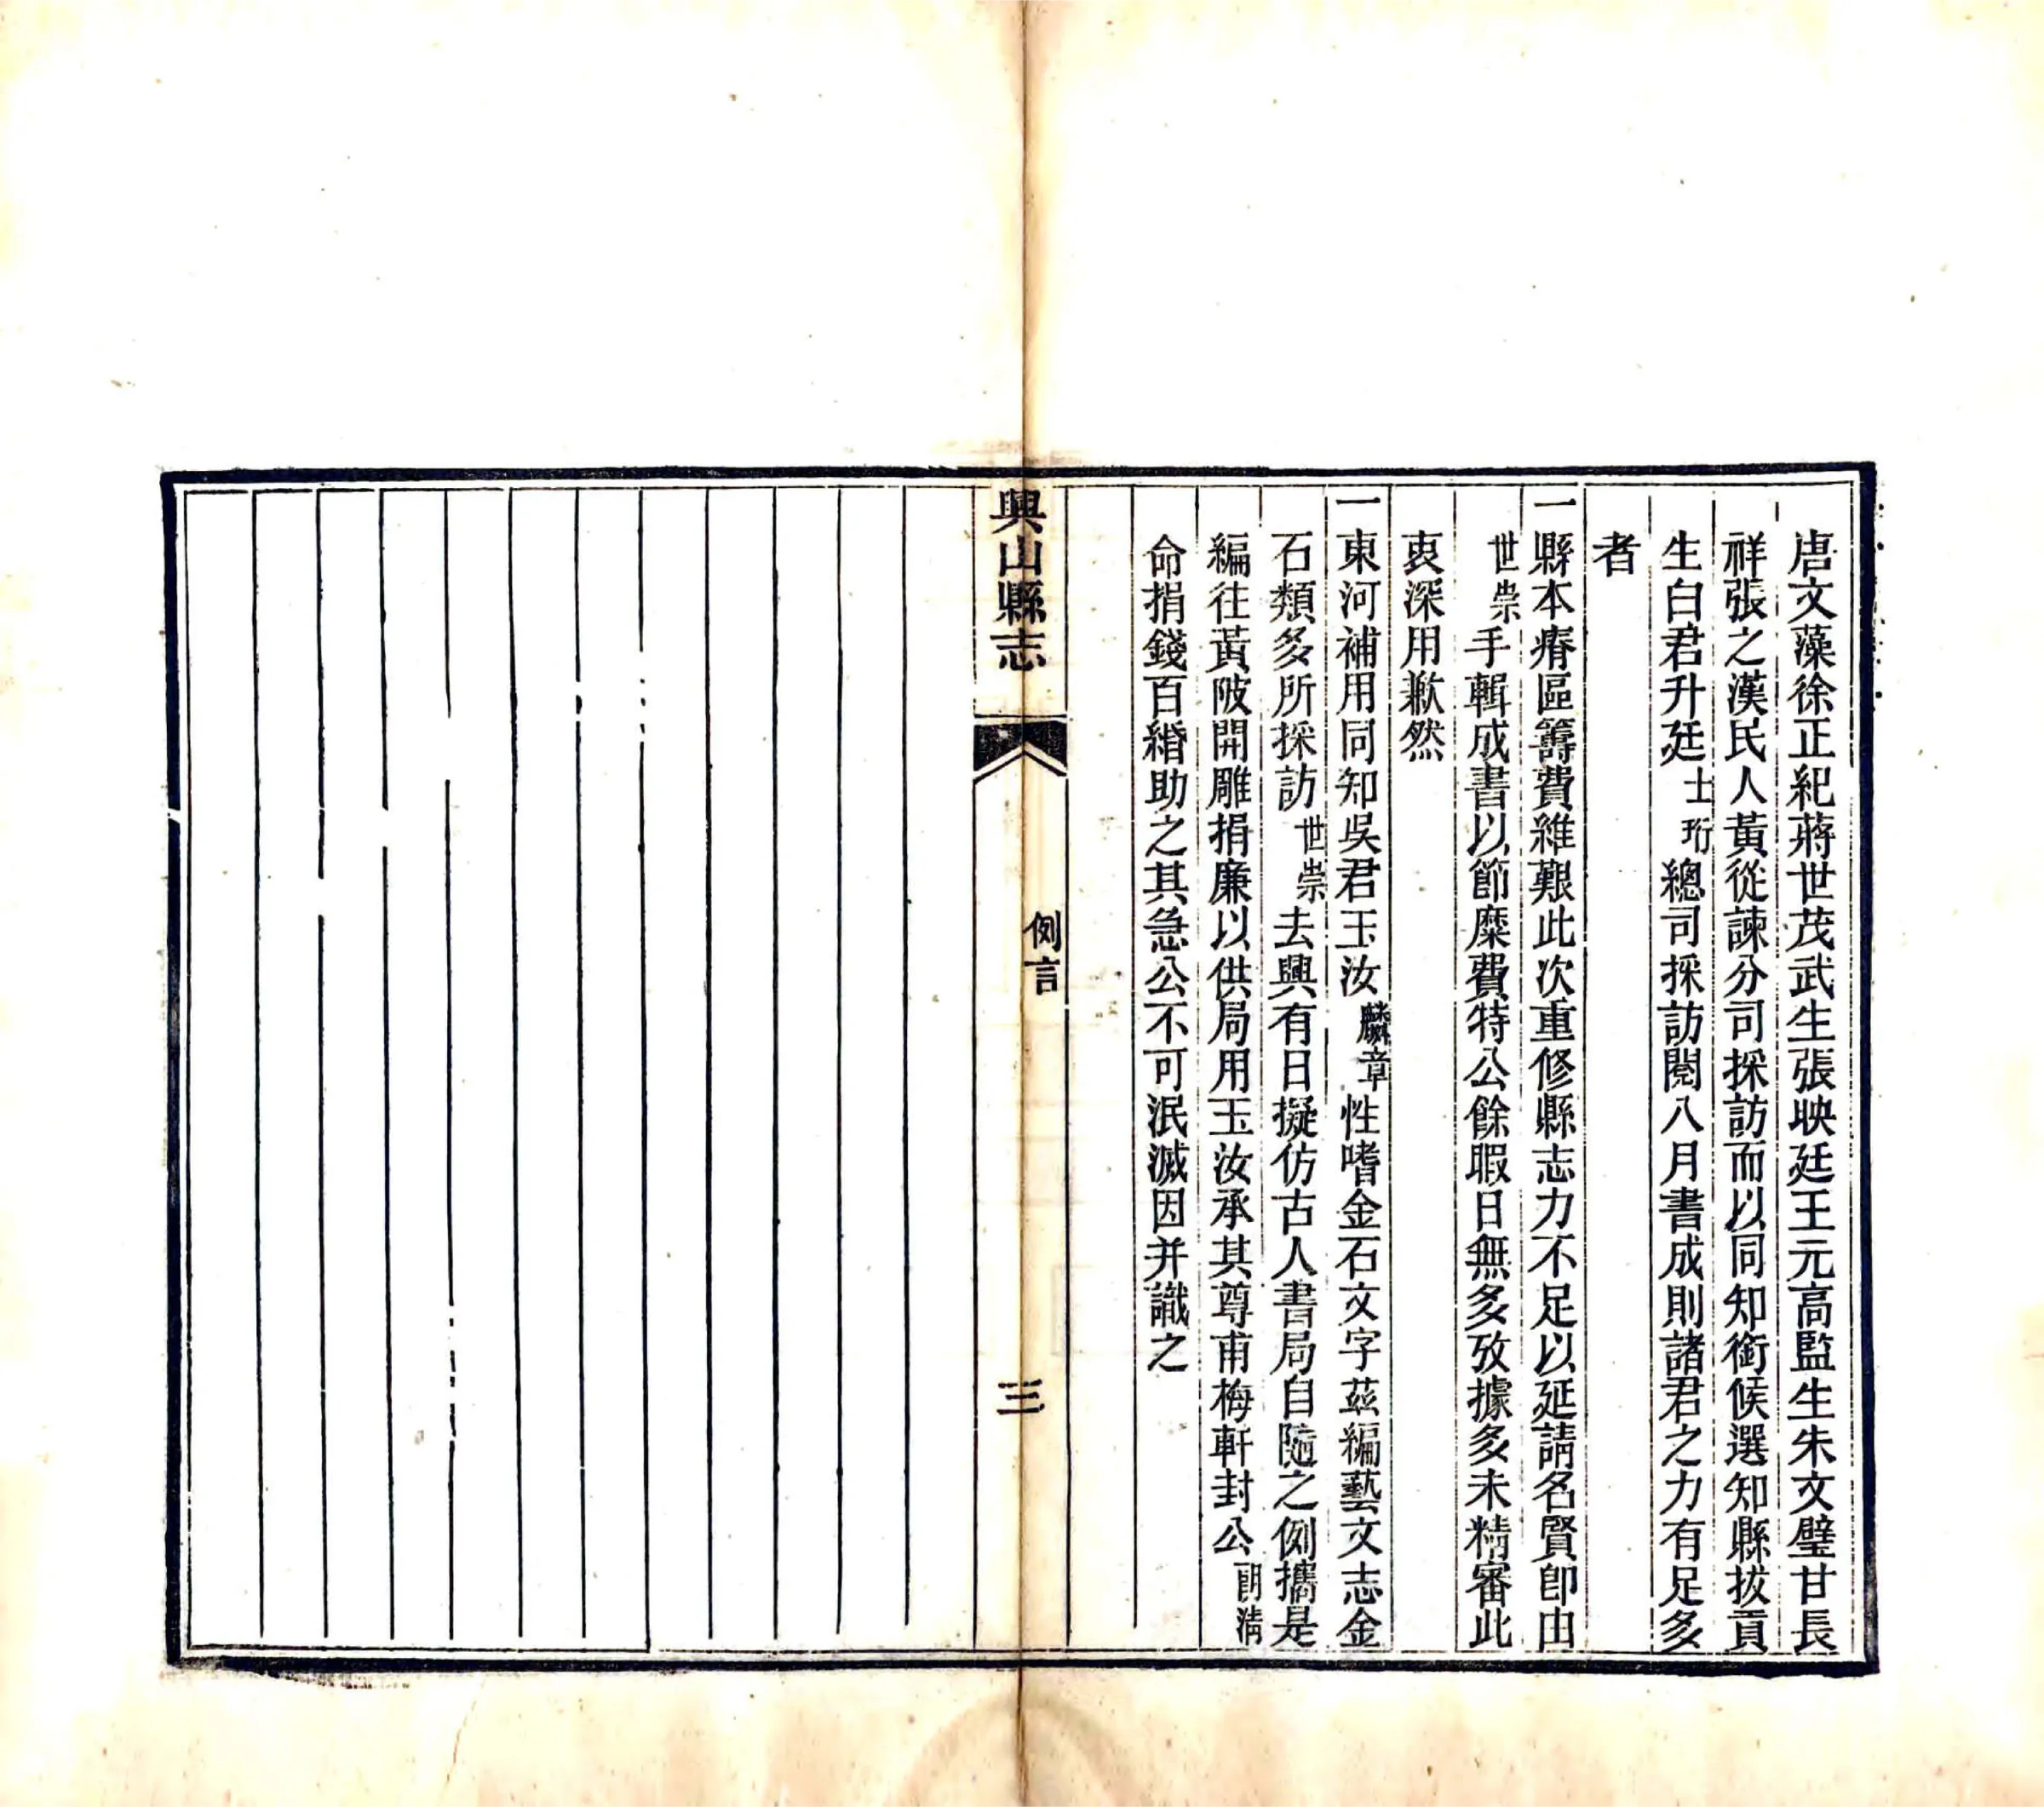 唐文藻徐正紀蔣世茂武生張映廷王元高監生朱文璧甘長
祥張之漢民人黃從諫分司採訪而以同知銜候選知縣拔貢
生白君升廷士珩總司採訪閱八月書成則諸君之力有足多
者
一縣本瘠區籌費維艱此次重修縣志力不足以延請名賢卽由
世崇手輯成書以節糜費特公餘暇日無多攷據多未精審此
衷深用歉然
一東河補用同知吳君玉汝麟章性嗜金石文字茲編藝文志金
石類多所採訪世崇去興有日擬仿古人書局自隨之例攜是
編往黃陂開雕捐廉以供局用玉汝承其尊甫梅軒封公朝清
命捐錢百緡助之其急公不可泯滅因并識之
興山縣志
例言
三